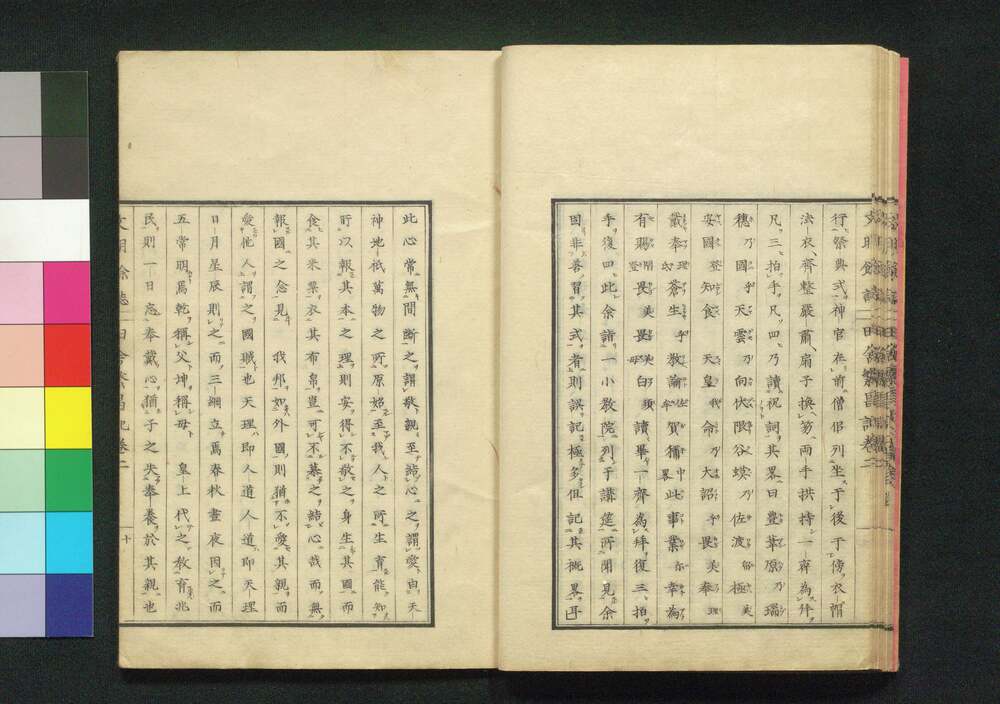 行祭典式神官在前僧侶列坐于後于傍衣帽
法衣齊整嚴肅扇子換笏両手拱持一齊為拝
凡三拍手凡四乃讀祝詞其畧曰豊葦原乃瑞
穂乃國乎天雲乃向伏限谷蟆乃佐渡極美
安國登知食 天皇我命乃大詔乎畏美奉
戴奉理氐蒼生乎教諭佐牟賀獮中畧此事業尓幸為
有賜開登畏美畏美母白須讀畢一齊為拝復三拍
手復四此余詣一小教院列于講筵所聞見余
固非善習其式者則誤記極多但記其概畧耳
此心常無間断之謂敬親至結心之謂愛由天
神地祇萬物之所原始至我人之所生育能知
所以報其本之理則安得不敬之身生其國而
食其米粟衣其布帛豈可不基之結心哉而無
報國之念見 我邦如外國則猶不愛其親而
愛他人謂之國賊也天理即人道人道即天理
日月星辰則之而三綱立焉春秋晝夜因之而
五常明焉乾稱父坤稱母 皇上代之教育兆
民則一日忘奉戴心猶子之失奉養於其親也
十